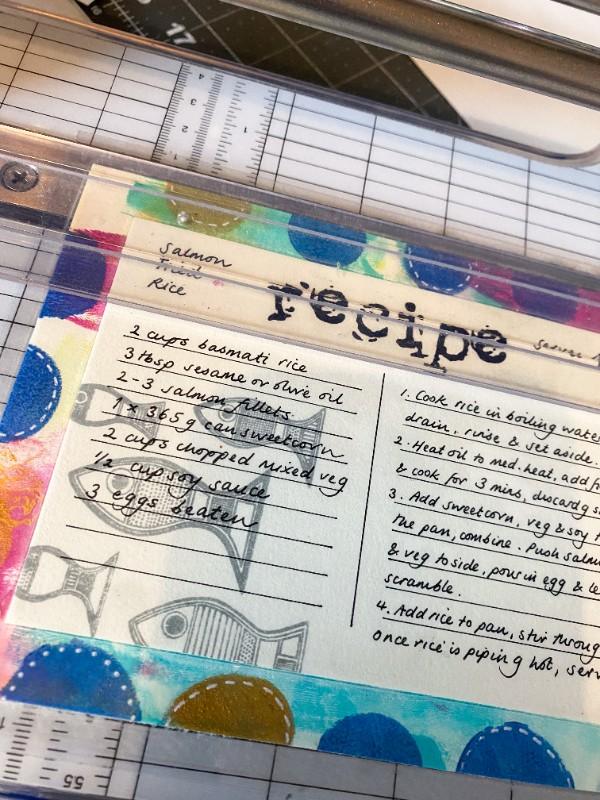 17
4
3
2
1
1
Salmon
Fried
Rice
recipe
2 cups basmati rice
3 tbsp sesame or olive oil
2-3 salmon fillets
1 x 365g can sweetcorn
2 cups chopped mixed veg
1/2 cup soy sauce
3 eggs beaten
1. Cook rice in boiling water
drain, rinse & set aside.
2. Heat oil to med. heat, add f
& cook for 3 mins, discard g s
3. Add sweetcorn, veg & soy t
the pan, combine. Push salm
& veg to side, pour in egg & le
scramble.
4. Add rice to pan, stir throug
once rice is piping hot, serv
55